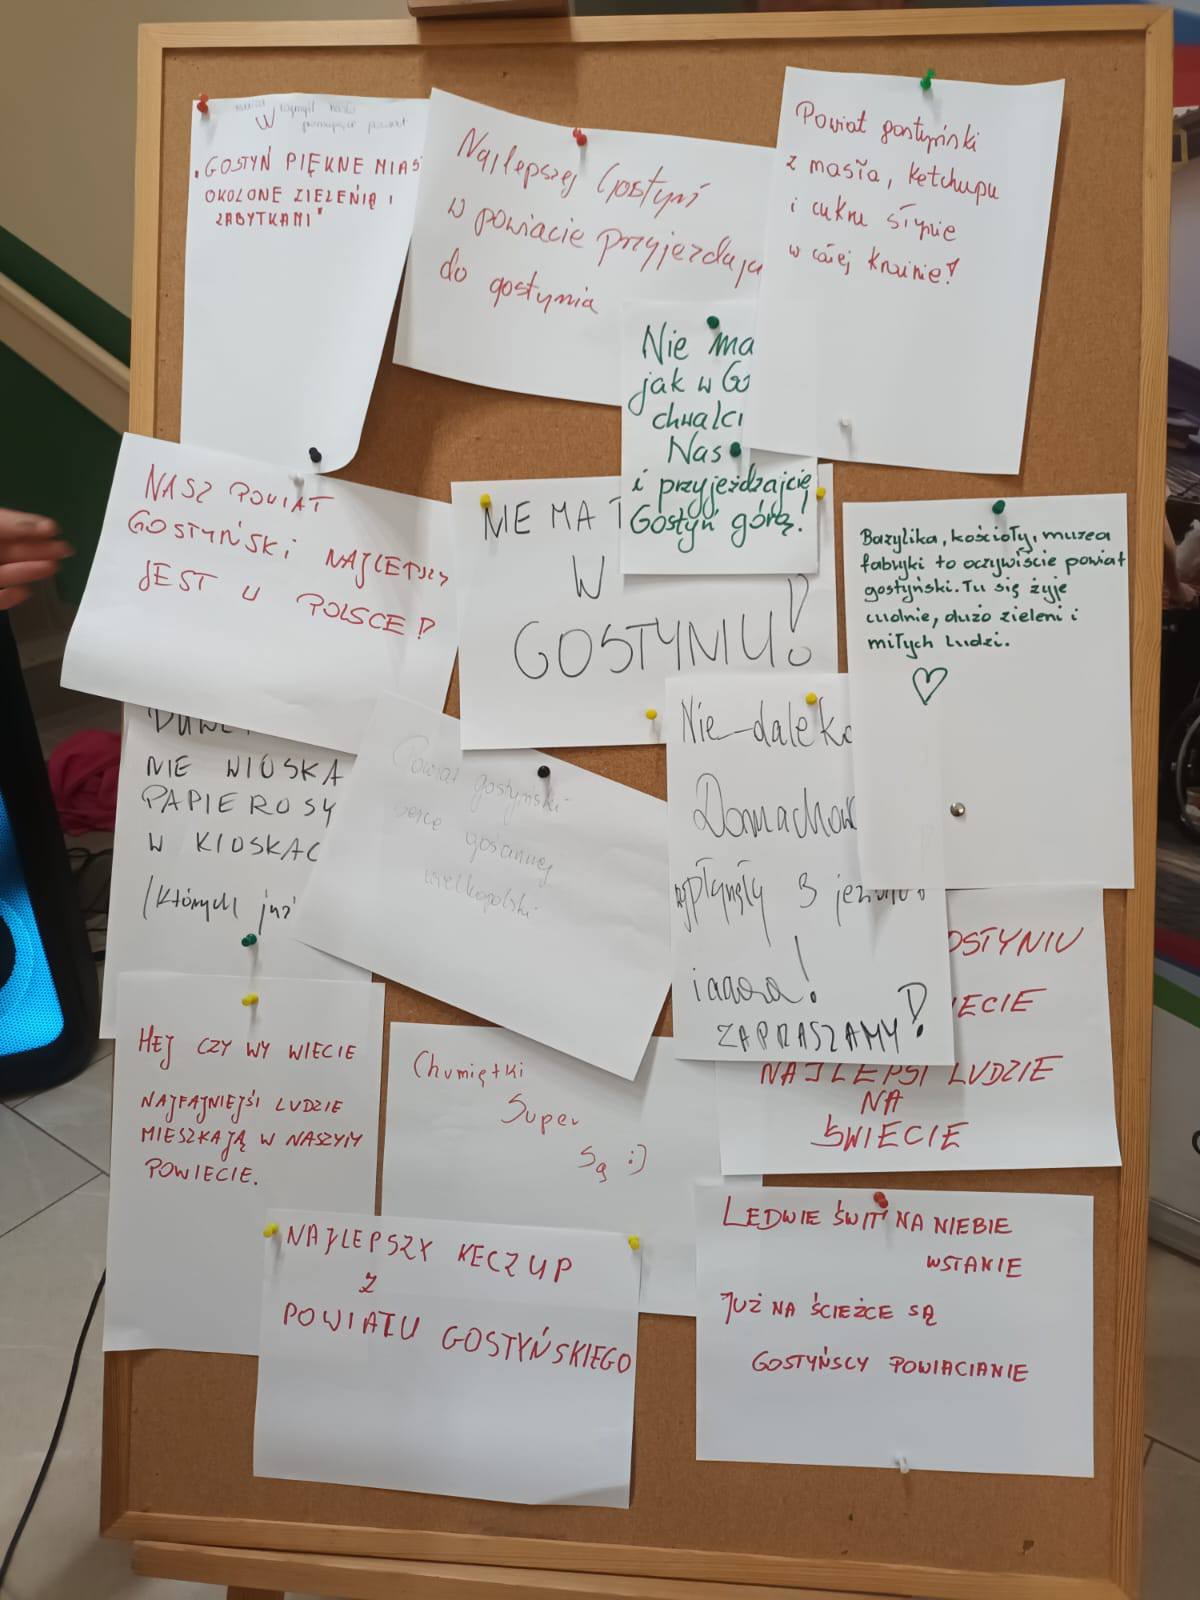 „GOSTYŃ PIĘKNE MIAS
OKOLONE ZIELENIĄ I
ZABYTKAMI"
Najlepszej Gostyń
w powiacie przyjezdaja
do gostynia
Powiat gostyński
z masła, ketchupu
i cukru słynie
w całej krainie!
Nie ma
jak w Go
chwalci
Nas
i przyjeżdzajcię
Gostyń górą!
NASZ POWIAT
GOSTYŃSKI NAJLEPSZY
JEST W POLSCE!
NIE MA
W
GOSTYNIU!
Bazylika, kościoły, muzea
fabryki to oczywiście powiat
gostyński. Tu się żyje
cudnie, dużo zieleni i
miłych ludzi.
NIE WIOSKA
PAPIEROSY
W KIOSKAC
(których już
Powiat gostyński
serce gościnnej
wielkopolski
Nie-daleko
Domachow
płynęły 3
ZAPRASZAMY!
OSTYNIU
IECIE
NAJLEPSI LUDZIE
NA
ŚWIECIE
HEJ CZY WY WIECIE
NAJFAJNIEJŚI LUDZIE
MIESZKAJĄ W NASZYM
POWIECIE.
Chumiętki
Super
Są :)
NAJLEPSZY KECZUP
Z
POWIATU GOSTYŃSKIEGO
LEDWIE ŚWIT NA NIEBIE
WSTANIE
JUŻ NA ŚCIEŻCE SĄ
GOSTYŃSCY POWIACIANIE